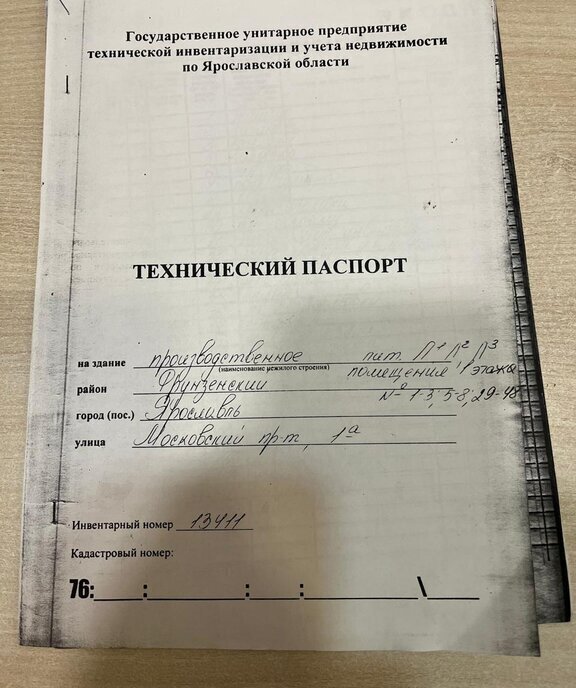 Государственное унитарное предприятие
технической инвентаризации и учета недвижимости
по Ярославской области
ТЕХНИЧЕСКИЙ ПАСПОРТ
на здание производственное лит. Л1, Л2, Л3
(наименование нежилого строения)
помещения 1 этажа
район Фрунзенский
№ 1-3, 5-8, 29-48
город (пос.) Ярославль
улица Московский пр-т, 1а
Инвентарный номер 13411
Кадастровый номер:
76:____:________:____:__________\_____